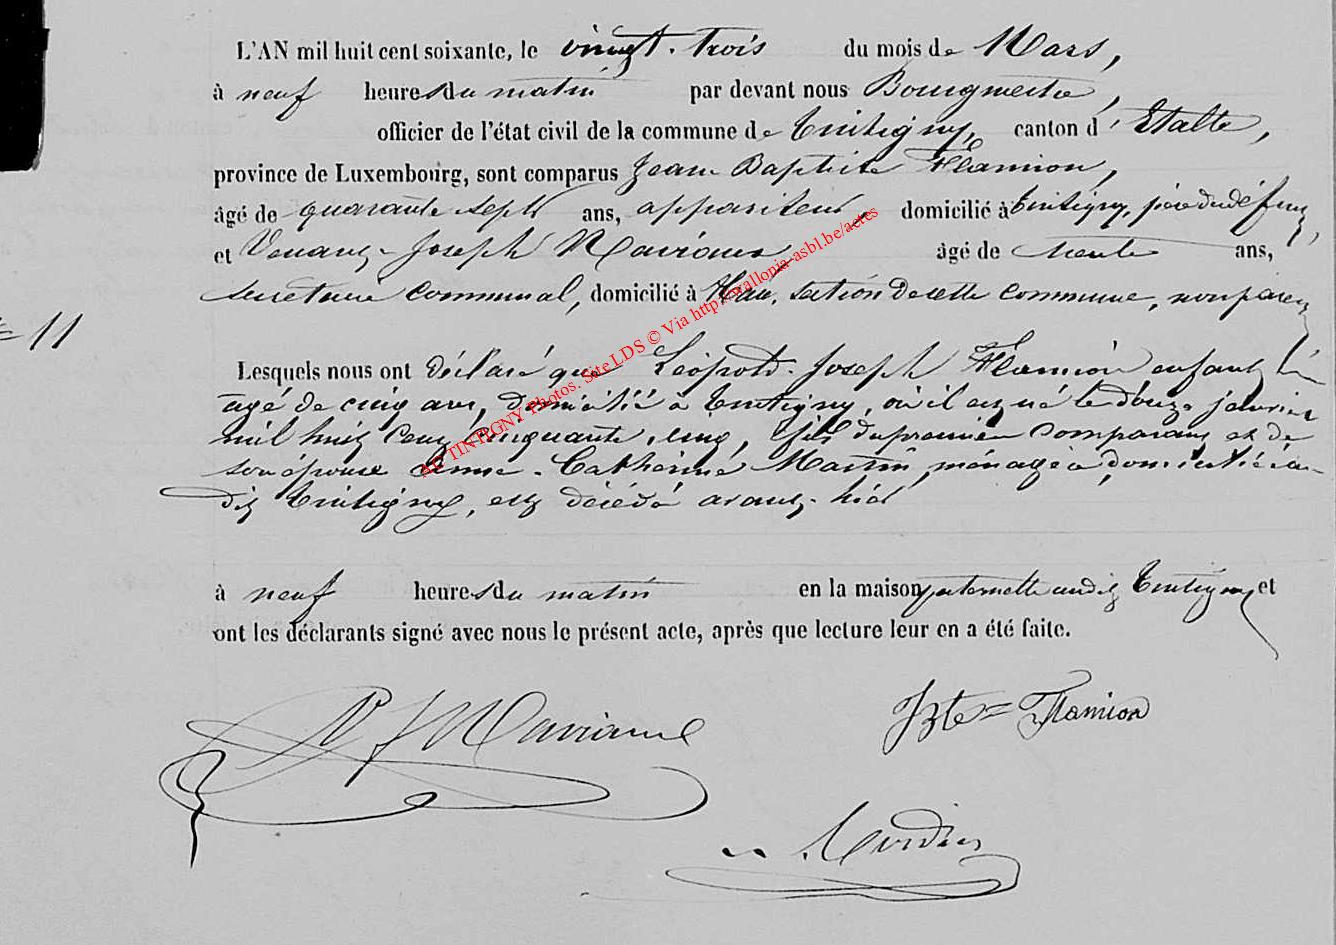 L'AN mil huit cent soixante, le vingt-trois du mois de Mars,
à neuf heures du matin par devant nous Bourgmestre,
officier de l'état civil de la commune de Tintigny, canton d'Etalle,
province de Luxembourg, sont comparus Jean Baptiste Flamion,
âgé de quarante sept ans, appariteur, domicilié à Tintigny, père du défunt,
et Venant-Joseph âgé de trente ans,
secrétaire communal, domicilié à Han, section de cette commune, non parent
11
Lesquels nous ont déclaré que Léopold-Joseph Flamion enfant
âgé de cinq ans, domicilié à Tintigny, où il est né le douze janvier
mil huit cent cinquante cinq, fils du premier comparant et de
son épouse Anne-Catherine Martin, ménagère, domiciliée au
dit Tintigny, est décédé avant-hier
à neuf heures du matin en la maison paternelle audit Tintigny et
ont les déclarants signé avec nous le présent acte, après que lecture leur en a été faite.
Jbte = Flamion
AE TINTIGNY Photos. Site LDS © Via http://wallonia-asbl.be/actes